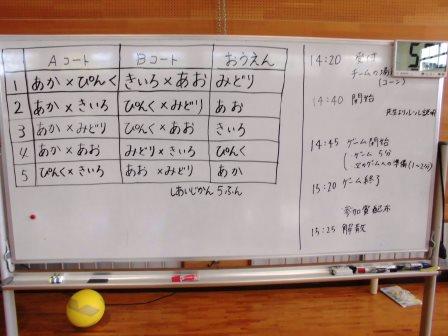 Aコート Bコート おうえん
1 あか×ぴんく きいろ×あお みどり
2 あか×きいろ ぴんく×みどり あお
3 あか×みどり ぴんく×あお きいろ
4 あか×あお みどり×きいろ ぴんく
5 ぴんく×きいろ あお×みどり あか
しあいじかん 5ふん
14:20 受付
チームの
(コーン)
14:40 開始
14:45 ゲーム開始
ゲーム 5分
次のゲームへの準備(1~2分)
15:20 ゲーム終了
参加賞配布
15:25 解散
5